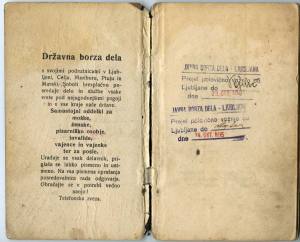 Državna borza dela
s svojimi podružnicami v Ljub-
ljani, Celju, Mariboru, Ptuju in
Murski Soboti brezplačno po-
sreduje delo in službe vsake
vrste pod najugodnejšimi pogoji
in v vse kraje naše države.
Samostojni oddelki za
moške,
ženske,
pisarniško osobje,
invalide,
vajence in vajenke
ter za posle.
Uraduje se vsak delavnik, pri-
glaša se lahko pismeno in ust-
meno. Na vsa pismena vprašanja
posredovalnica rada odgovarja.
Obračajte se v potrebi vedno
nanjo!
Telefonska zveza.
JAVNA BORZA DELA - LJUBLJANA
Prejel polovično
Ljubljane do
dne
JAVNA BORZA DELA - LJUBLJANA
Prejel polovično
Ljubljane do
dne